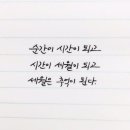 순간이 시간이 되고
시간이 세월이 되고
세월은 추억이 된다.